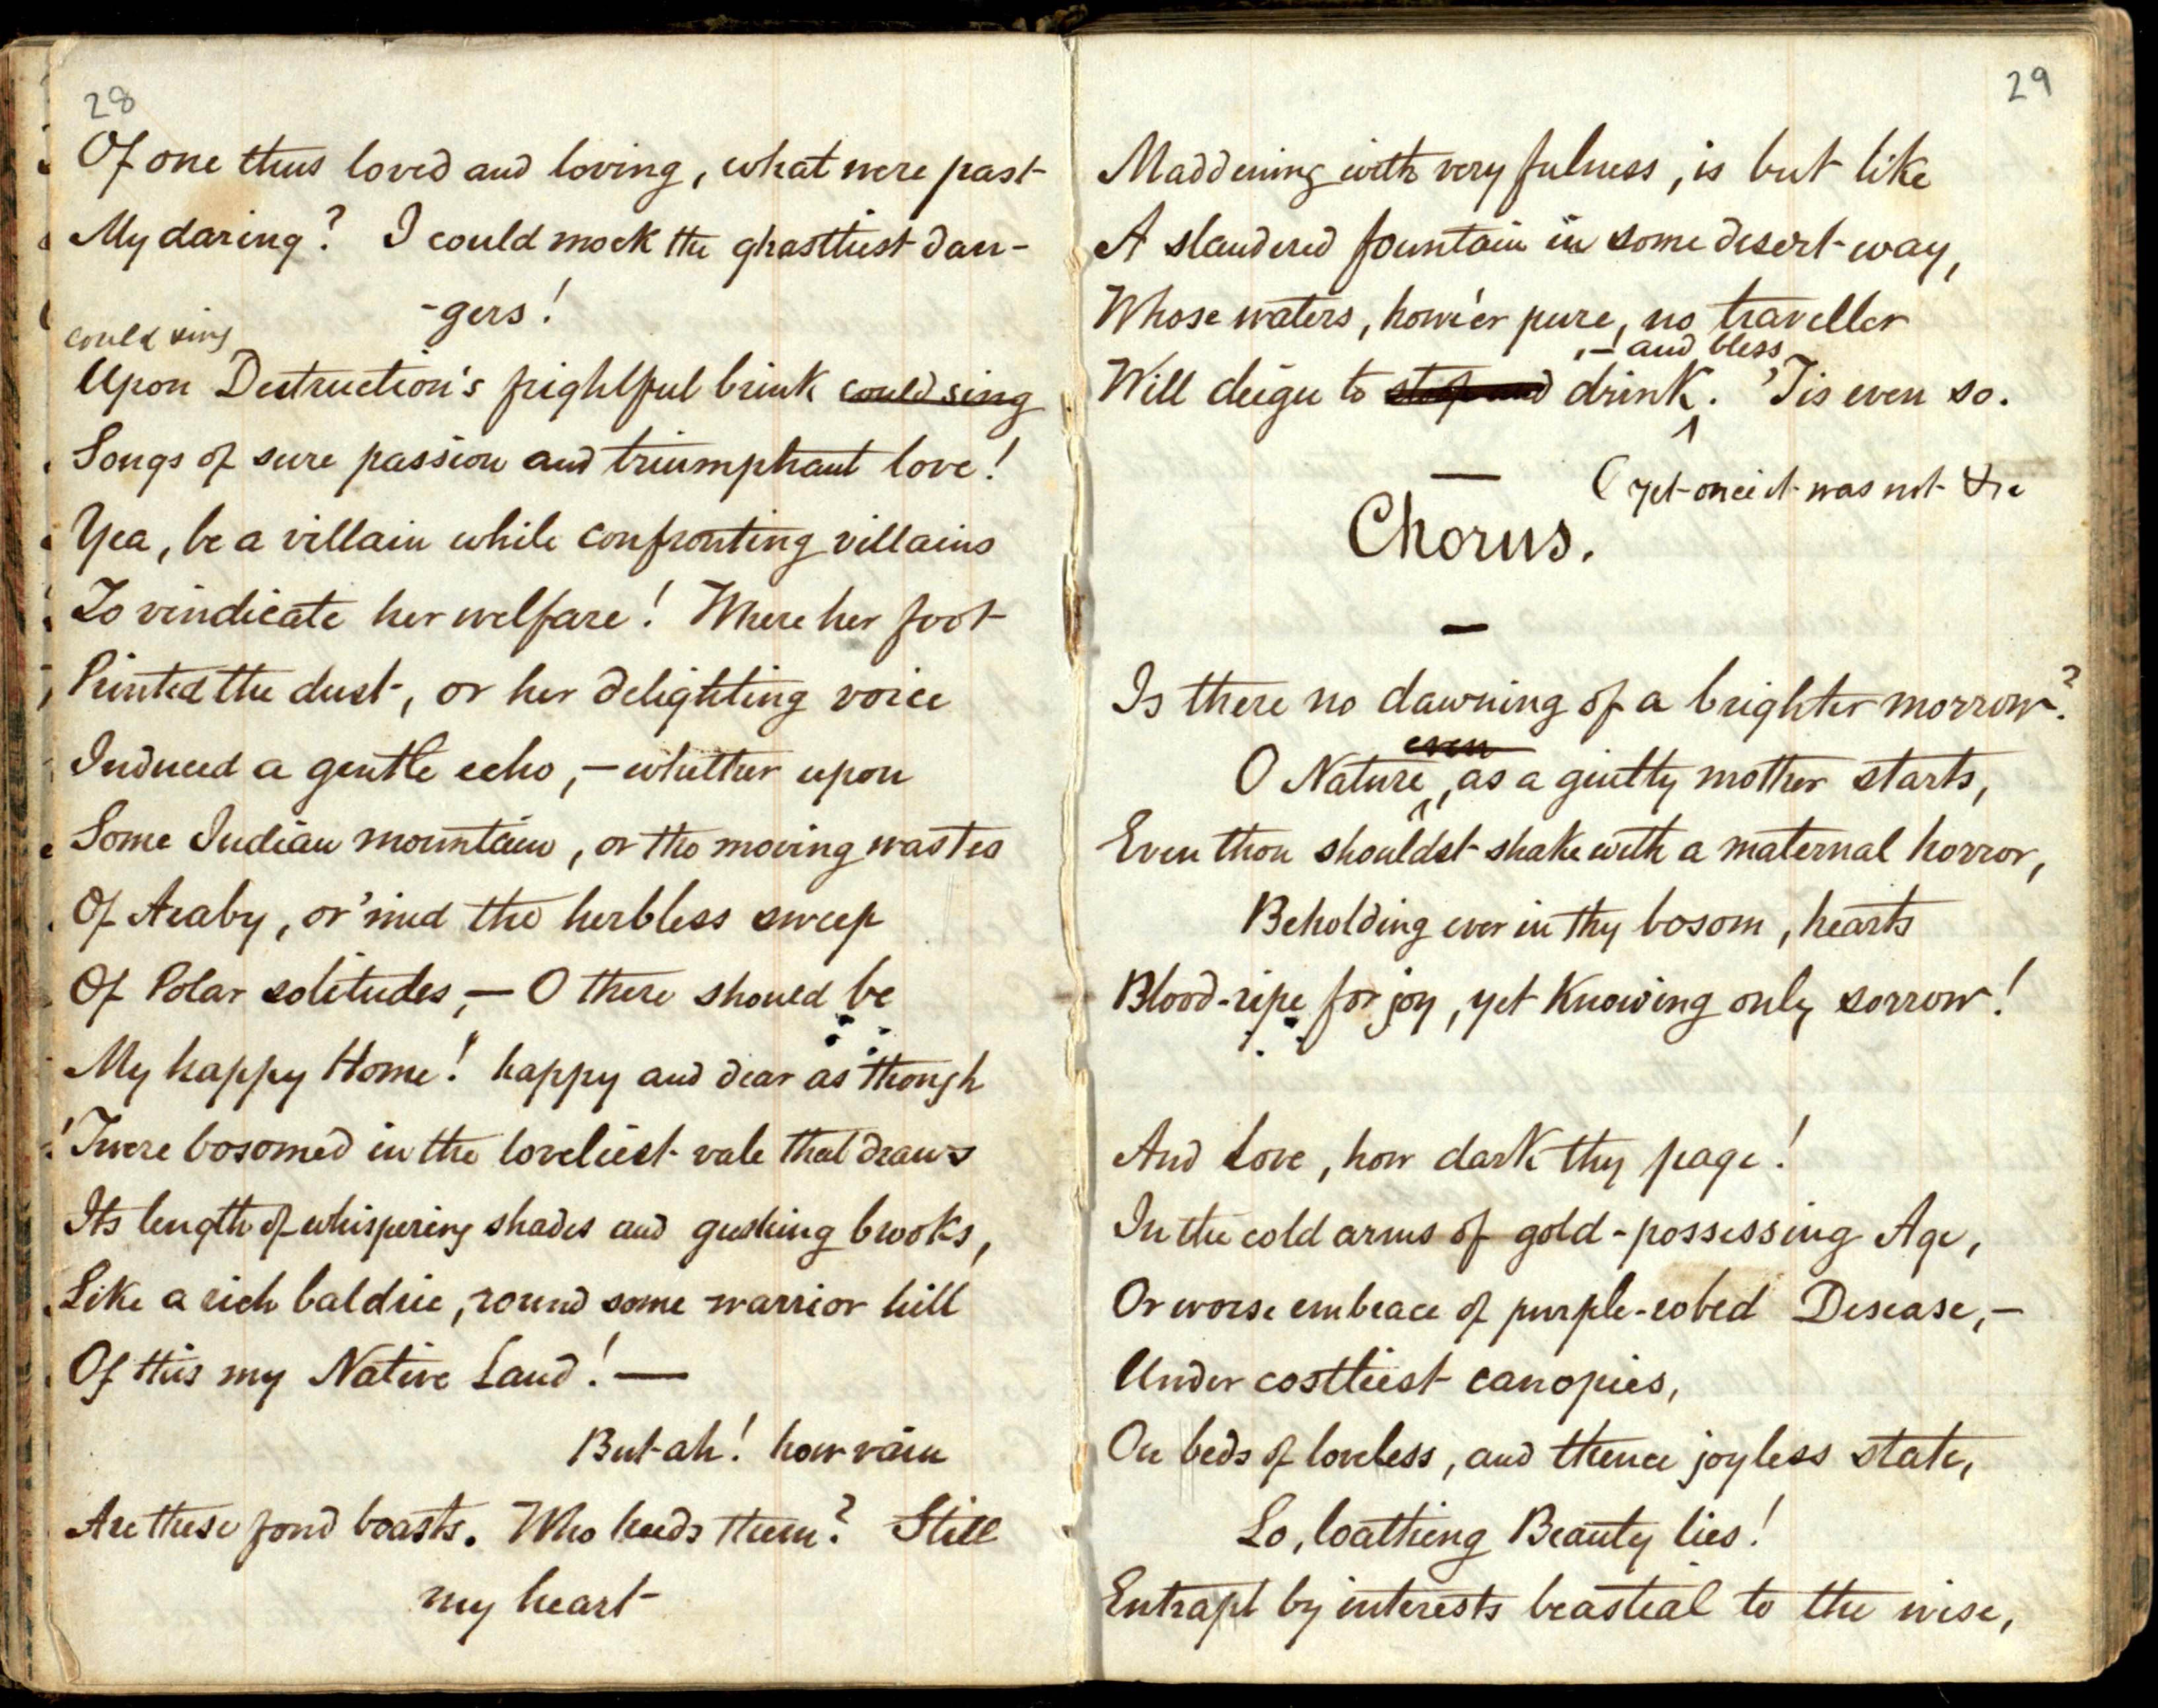 28
Of one thus loved and loving, what were past
My daring? I could mock the ghastliest dan-
-gers!
could sing
Upon Destruction's frightful brink could sing
Songs of sure passion and triumphant love!
Yea, be a villain while confronting villains
To vindicate her welfare! Where her foot
Printed the dust, or her delighting voice
Induced a gentle echo,—whether upon
Some Indian mountain, or the moving wastes
Of Araby, or 'mid the herbless sweep
Of Polar solitudes,—O there should be
My happy Home! happy and dear as though
'Twere bosomed in the loveliest vale that draws
Its length of whispering shades and gushing brooks,
Like a rich baldric, round some warrior hill
Of this my Native Land!—
But ah! how vain
Are these fond boasts. Who heeds them? Still
my heart
29
Maddening with very fulness, is but like
A slandered fountain in some desert way,
Whose waters, howe'er pure, no traveller
,—and bless
Will deign to stoop and drink. 'Tis even so.
(yet once it was not &c
Chorus.
Is there no dawning of a brighter morrow?
even
O Nature, as a guilty mother starts,
Even thou shouldst shake with a maternal horror,
Beholding ever in thy bosom, hearts
Blood-ripe for joy, yet knowing only sorrow!
And Love, how dark thy page!
In the cold arms of gold-possessing Age,
Or worse embrace of purple-robed Disease,—
Under costliest canopies,
On beds of loveless, and thence joyless state,
Lo, loathing Beauty lies!
Entrapt by interests beastial to the wise,